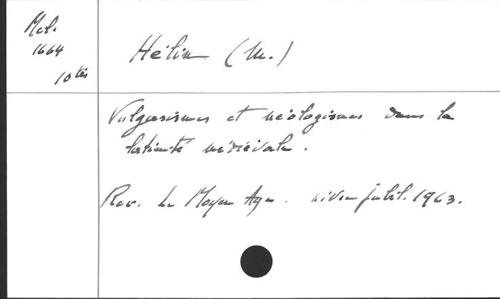 Mel.
1664
10 bis
Hélin (M.)
Vulgarismes et néologismes dans la
latinité médiévale.
Rev. Le Moyen Age. jubil. 1963.